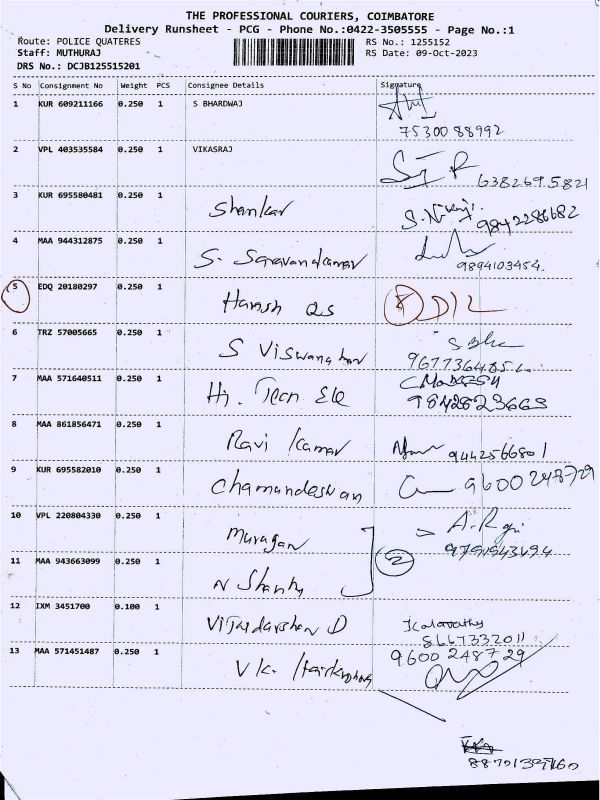 THE PROFESSIONAL COURIERS, COIMBATORE
Delivery Runsheet - PCG - Phone No.:0422-3505555 - Page No.:1
Route: POLICE QUATERES RS No.: 1255152
Staff: MUTHURAJ RS Date: 09-Oct-2023
DRS No.: DCJB125515201
S No Consignment No Weight PCS Consignee Details Signature
1 KUR 609211166 0.250 1 S BHARDWAJ
7530088992
2 VPL 403535584 0.250 1 VIKASRAJ
6382695821
3 KUR 695580481 0.250 1
Shankar 9842286682
4 MAA 944312875 0.250 1
S. Saravanakumar
9894103454
5 EDQ 20180297 0.250 1
Harish QS
6 TRZ 57005665 0.250 1
S Viswanathan
7 MAA 571640511 0.250 1
Hi. Tech Ele 9842823663
8 MAA 861856471 0.250 1
Ravi Kumar 9442566801
9 KUR 695582010 0.250 1
Chamundeswari 9600248729
10 VPL 220804330 0.250 1
Murugan
11 MAA 943663099 0.250 1 2
N Shanthi
12 IXM 3451700 0.100 1
Vijaidarshan D Kalavathy
8667332011
13 MAA 571451487 0.250 1 9600248729
V K.